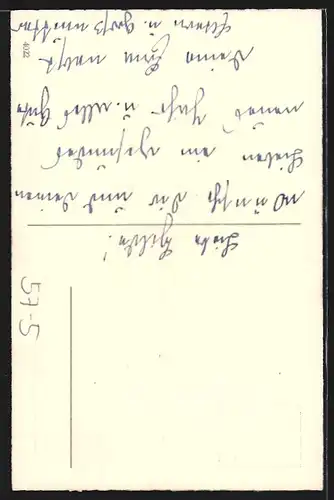 Liebe Hilde!
Wünsche Dir und Deinen
Lieben ein gesundes
neues Jahr u. alles Gute
Deine Erna nebst
Eltern u. Großmutter
4022
57-S